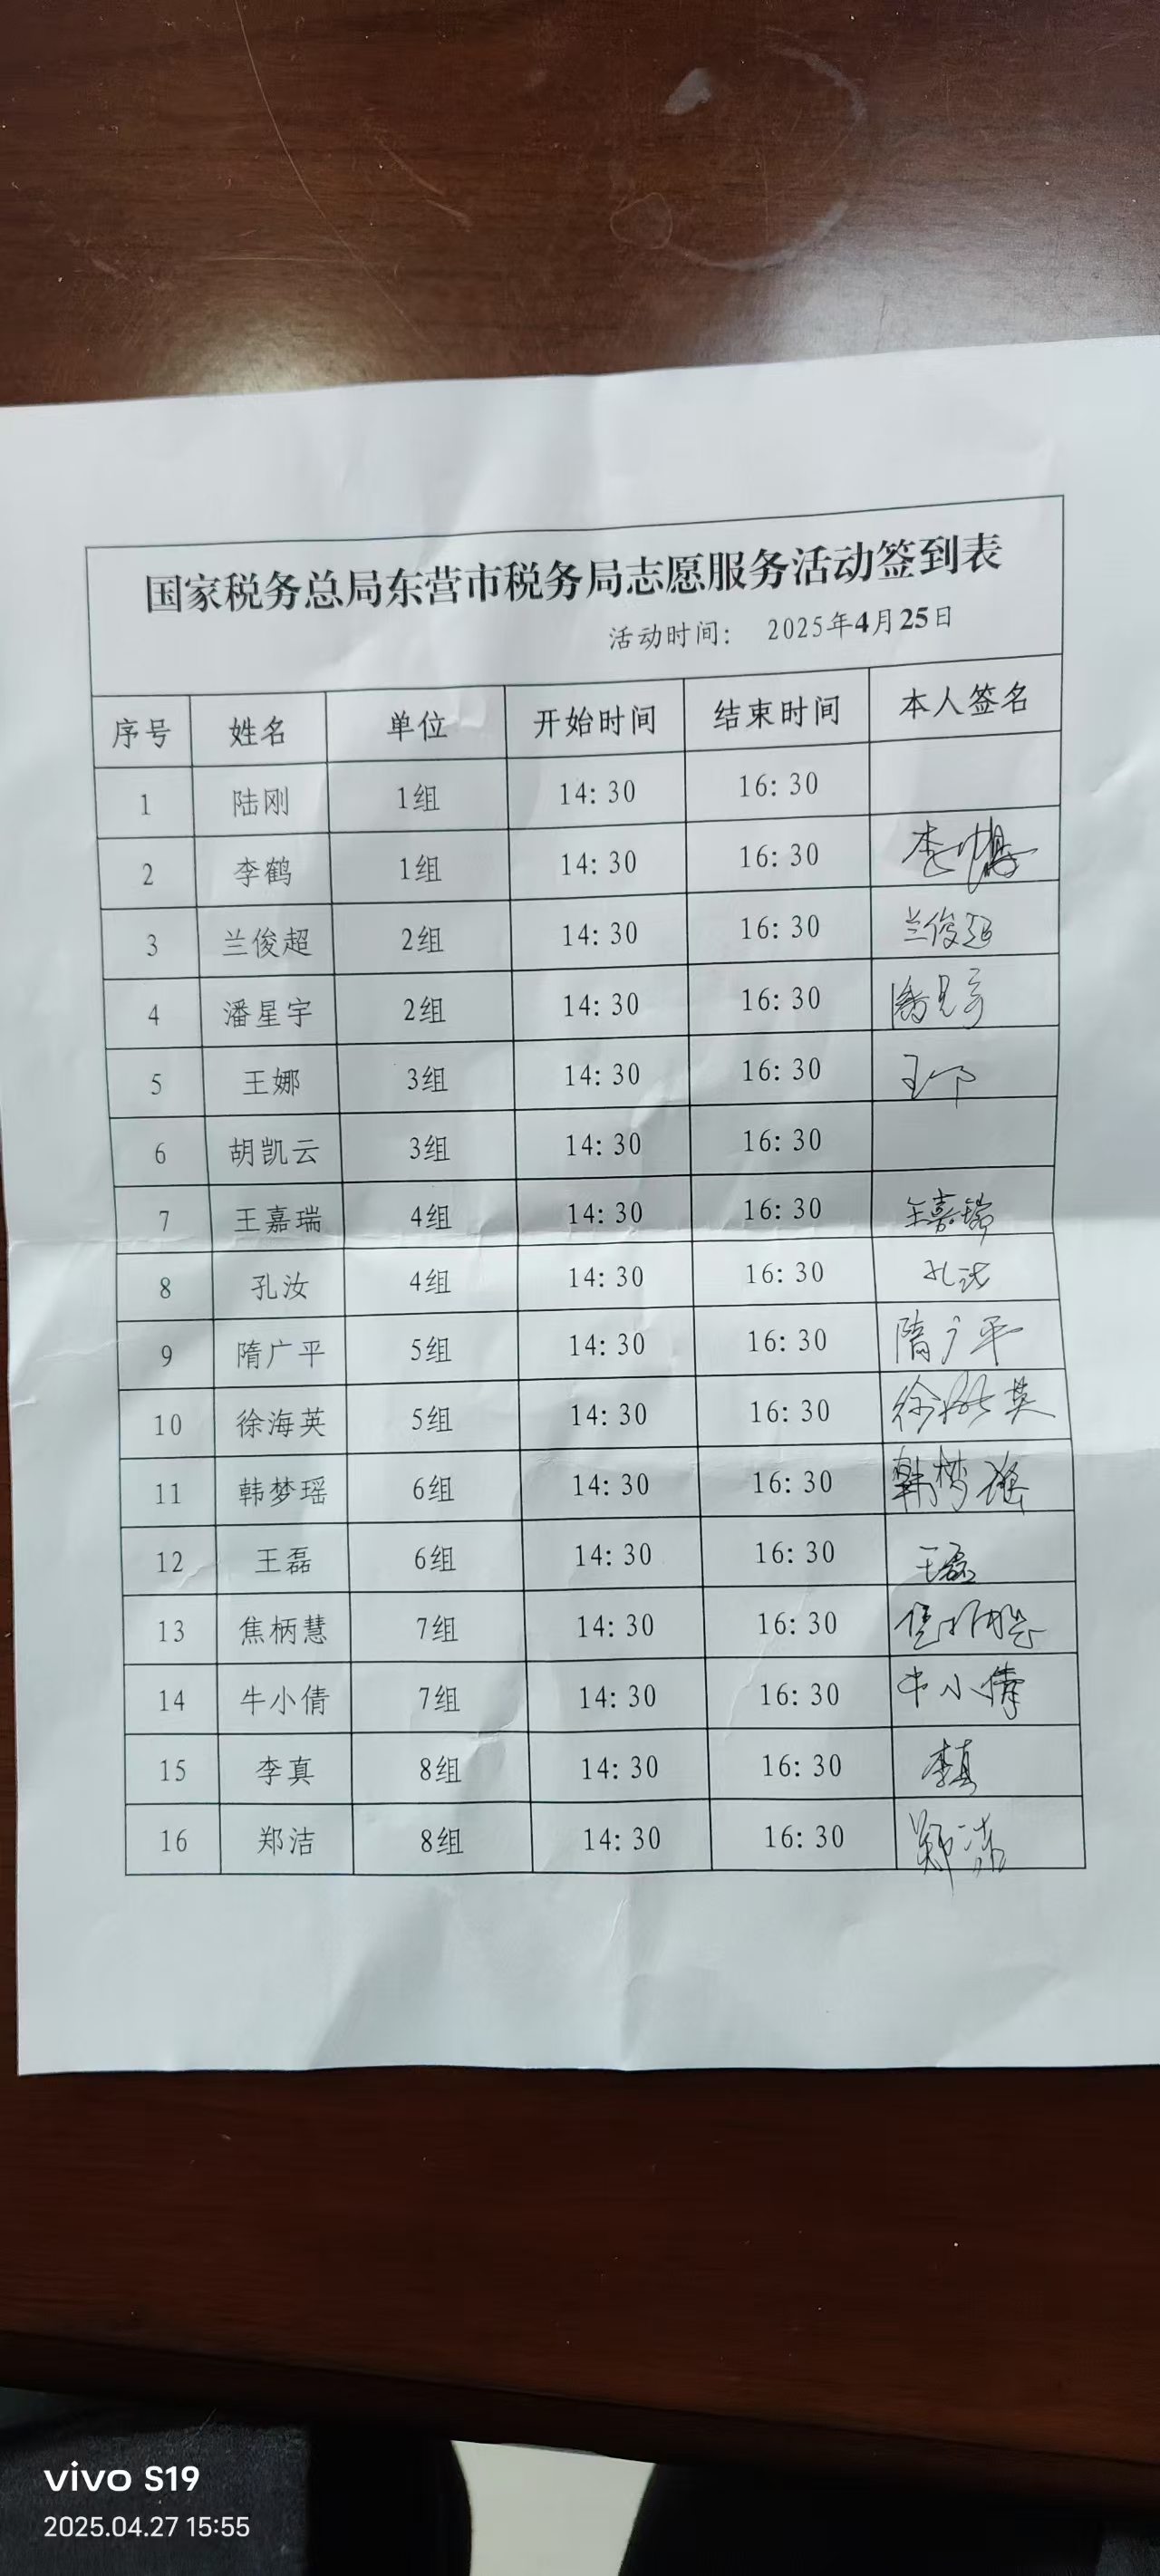 国家税务总局东营市税务局志愿服务活动签到表
活动时间： 2025年4月25日
序号 姓名 单位 开始时间 结束时间 本人签名
1 陆刚 1组 14:30 16:30
2 李鹤 1组 14:30 16:30 李鹤
3 兰俊超 2组 14:30 16:30 兰俊超
4 潘星宇 2组 14:30 16:30 潘星宇
5 王娜 3组 14:30 16:30 王
6 胡凯云 3组 14:30 16:30
7 王嘉瑞 4组 14:30 16:30 王嘉瑞
8 孔汝 4组 14:30 16:30 孔汝
9 隋广平 5组 14:30 16:30 隋广平
10 徐海英 5组 14:30 16:30 徐海英
11 韩梦瑶 6组 14:30 16:30 韩梦瑶
12 王磊 6组 14:30 16:30 王磊
13 焦柄慧 7组 14:30 16:30 焦柄慧
14 牛小倩 7组 14:30 16:30 牛小倩
15 李真 8组 14:30 16:30 李真
16 郑洁 8组 14:30 16:30 郑洁
vivo S19
2025.04.27 15:55